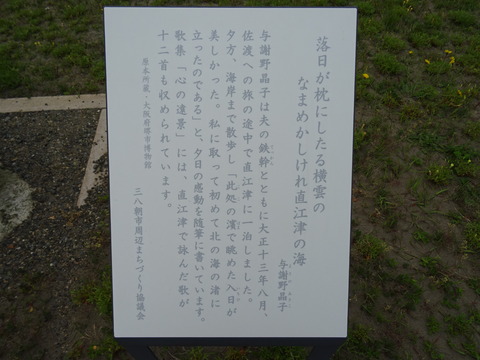 落日が枕にしたる横雲の
なまめかしけれ直江津の海
与謝野晶子
与謝野晶子は夫の鉄幹とともに大正十三年八月、
佐渡への旅の途中で直江津に一泊しました。
夕方、海岸まで散歩し「此処の濱で眺めた入日が
美しかった。私に取って初めて北の海の渚に
立ったのである」と、夕日の感動を随筆に書いています。
歌集「心の遠景」には、直江津で詠んだ歌が
十二首も収められています。
原本所蔵・大阪府堺市博物館
三八朝市周辺まちづくり協議会